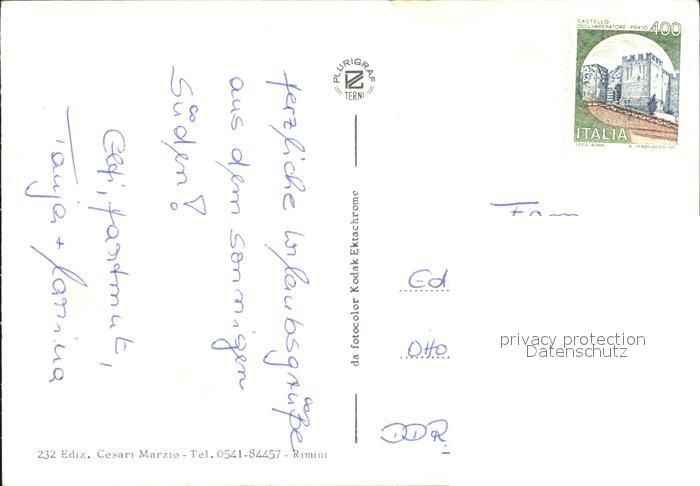 CASTELLO
DELL'IMPERATORE-PRATO 400
ITALIA
I.P.Z.S. ROMA
PLURIGRAF
TERNI
Herzliche Urlaubsgrüße
aus dem sonnigen
Süden!
Hartmut,
Tanja +
da fotocolor Kodak Ektachrome
Frau
Ed
Otto
DDR
privacy protection
Datenschutz
232 Ediz. Cesari Marzio - Tel. 0541-84457 - Rimini